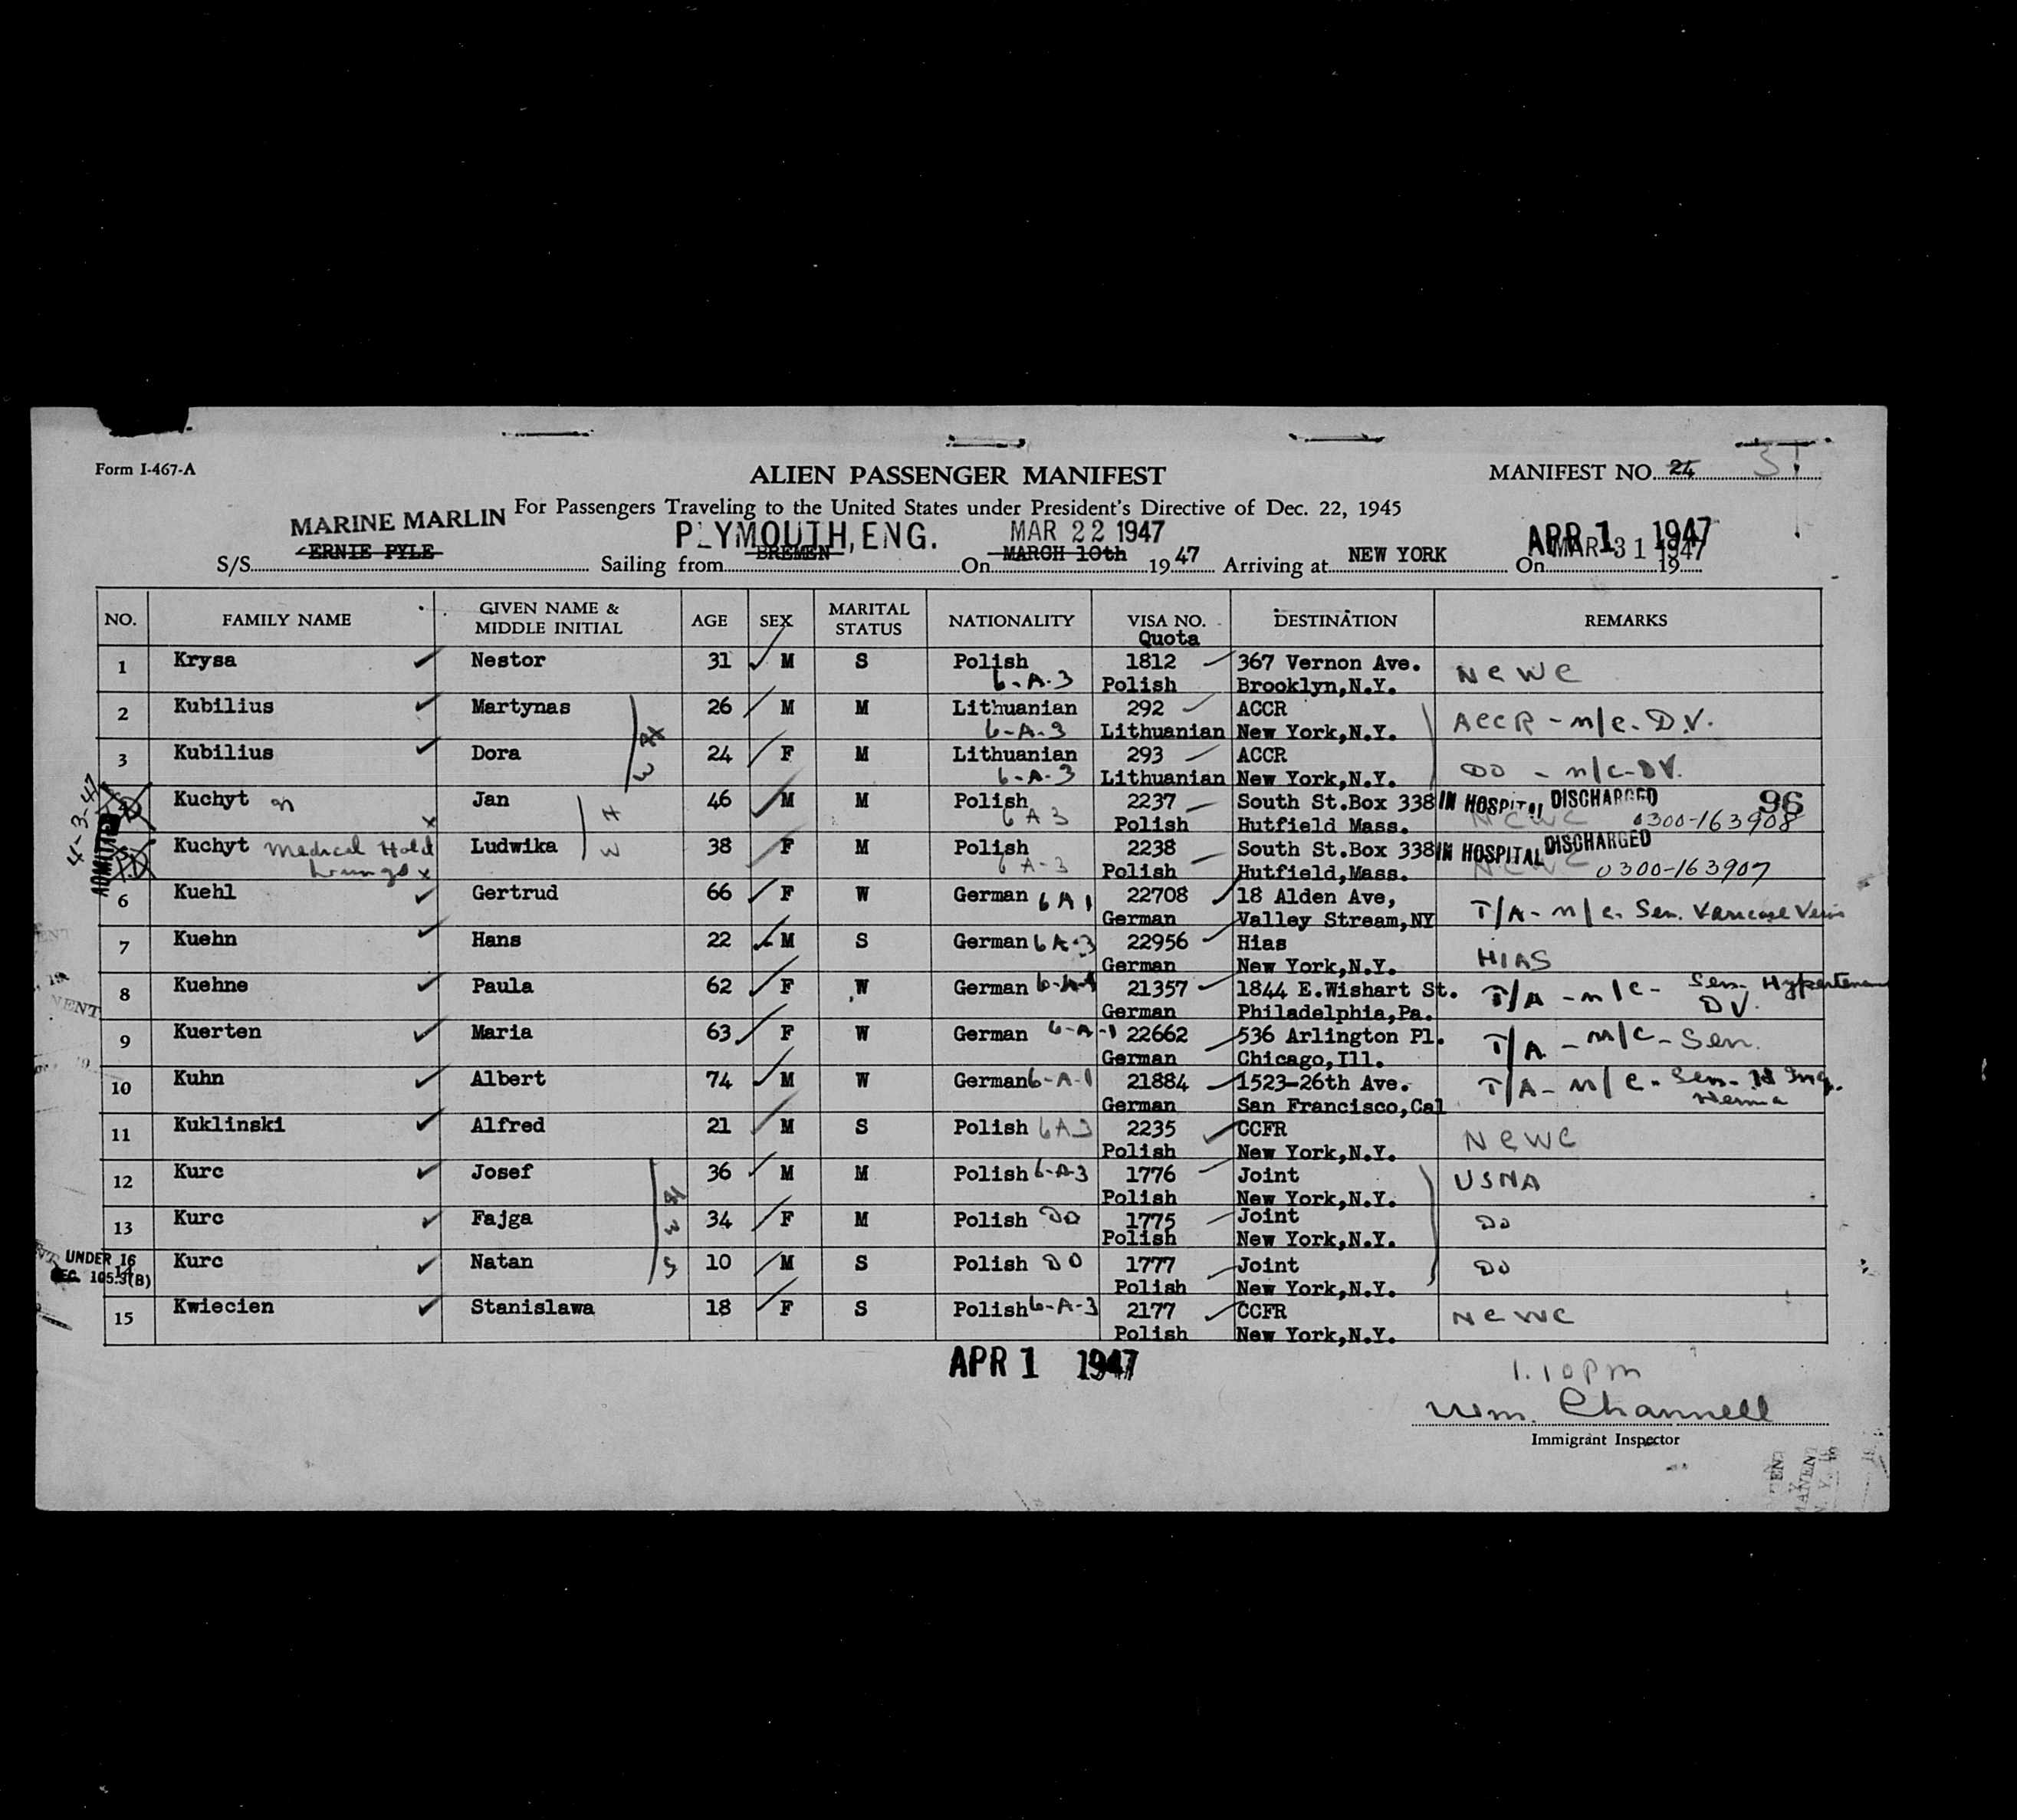 Form I-467-A
ALIEN PASSENGER MANIFEST
MANIFEST NO. 24
For Passengers Traveling to the United States under President's Directive of Dec. 22, 1945
MARINE MARLIN
PLYMOUTH, ENG.
MAR 22 1947
APR 1 1947
MAR 31 1947
S/S ERNIE PYLE Sailing from BREMEN On MARCH 10th 19 47 Arriving at NEW YORK On 19
NO. FAMILY NAME GIVEN NAME & MIDDLE INITIAL AGE SEX MARITAL STATUS NATIONALITY VISA NO. Quota DESTINATION REMARKS
1 Krysa Nestor 31 M S Polish 1812 367 Vernon Ave. NCWC
6-A-3 Polish Brooklyn,N.Y.
2 Kubilius Martynas 26 M M Lithuanian 292 ACCR ACCR - n/c. D.V.
6-A-3 Lithuanian New York,N.Y.
3 Kubilius Dora 24 F M Lithuanian 293 ACCR DO - n/c-DV.
6-A-3 Lithuanian New York,N.Y.
H
W
4-3-47
ADMITTED
Kuchyt Jan 46 M M Polish 2237 South St.Box 338 IN HOSPITAL DISCHARGED 96
x H 6A3 Polish Hutfield Mass. NCWC 0300-163908
Kuchyt Medical Hold Ludwika 38 F M Polish 2238 South St.Box 338 IN HOSPITAL DISCHARGED
Lungs x W 6A-3 Polish Hutfield,Mass. NCWC 0300-163907
6 Kuehl Gertrud 66 F W German 6A1 22708 18 Alden Ave, T/A - n/c. Sen. Varicose Veins
German Valley Stream,NY
7 Kuehn Hans 22 M S German 6A-3 22956 Hias HIAS
German New York,N.Y.
8 Kuehne Paula 62 F W German 6-A-1 21357 1844 E.Wishart St. T/A - n/c - Sen. Hypertension
German Philadelphia,Pa. DV.
9 Kuerten Maria 63 F W German 6-A-1 22662 536 Arlington Pl. T/A - n/c - Sen.
German Chicago,Ill.
10 Kuhn Albert 74 M W German 6-A-1 21884 1523-26th Ave. T/A - n/c. Sen. Ing.
German San Francisco,Cal Hernia
11 Kuklinski Alfred 21 M S Polish 6A3 2235 CCFR NCWC
Polish New York,N.Y.
12 Kurc Josef 36 M M Polish 6-A-3 1776 Joint USNA
Polish New York,N.Y.
13 Kurc Fajga 34 F M Polish DO 1775 Joint DO
Polish New York,N.Y.
UNDER 16
14 Kurc Natan 10 M S Polish DO 1777 Joint DO
SEC. 105.3(B) Polish New York,N.Y.
H
W
S
15 Kwiecien Stanislawa 18 F S Polish 6-A-3 2177 CCFR NCWC
Polish New York,N.Y.
APR 1 1947
1.10 PM
Wm. Channell
Immigrant Inspector